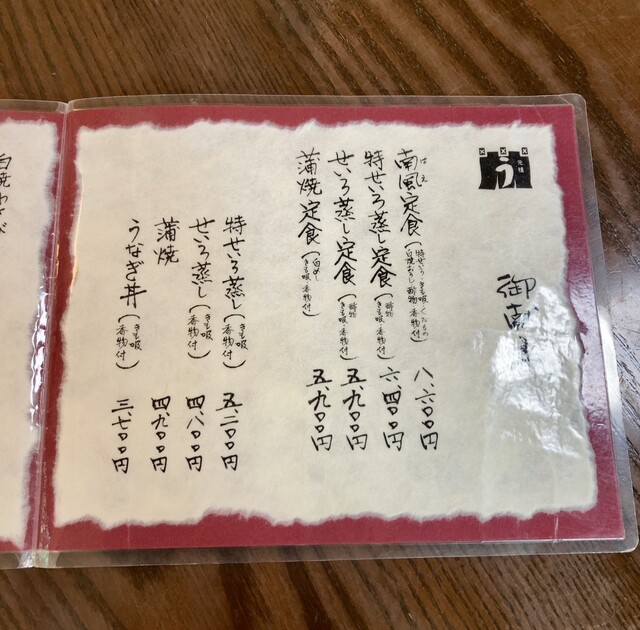 う
元祖
御献立
南風定食(特せいろ・きも吸・くだもの 白焼おろし・酢物・香物付) 八、六〇〇円
はえ
特せいろ蒸し定食(酢物 きも吸・香物付) 六、四〇〇円
せいろ蒸し定食(酢物 きも吸・香物付) 五、九〇〇円
蒲焼定食(白めし きも吸・香物付) 五、九〇〇円
特せいろ蒸し(きも吸 香物付) 五、二〇〇円
せいろ蒸し(きも吸 香物付) 四、八〇〇円
蒲焼(きも吸 香物付) 四、九〇〇円
うなぎ丼(きも吸 香物付) 三、七〇〇円
白焼わさび